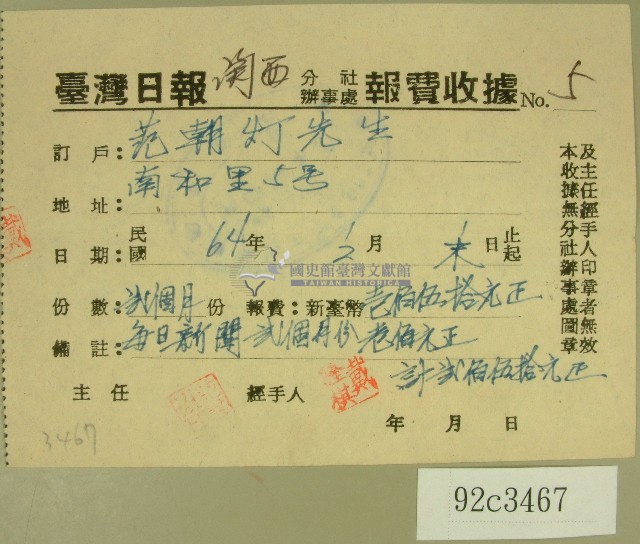 臺灣日報 関西 分社辦事處 報費收據 No. 5
訂戶: 范朝灯先生
地址: 南和里5号
日期: 民國 64 年 1/2 月 1 末 日 止起
份數: 弍個月 份 報費: 新臺幣 壱佰伍拾元正
備註: 每日新聞 弍個月份 壱佰元正
計弍佰伍拾元正
主任 經手人
年 月 日
本收據無分社辦事處圖章
及主任經手人印章者無效
國史館臺灣文獻館
TAIWAN HISTORICA
戴
3467
92c3467